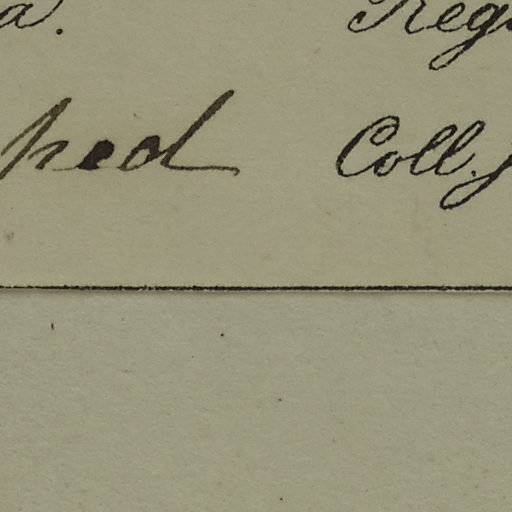 a. Reg
hed Coll.